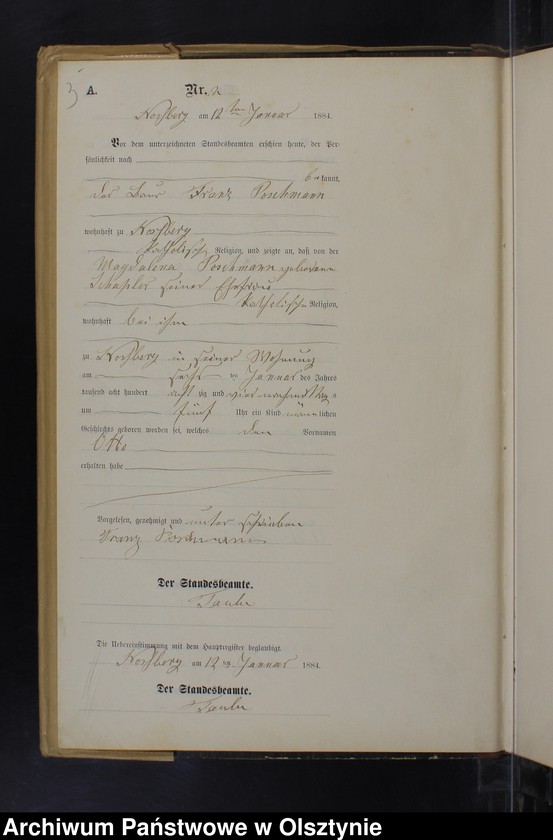 3
A. Nr. 2
Nossberg am 12 ten Januar 1884.
Vor dem unterzeichneten Standesbeamten erschien heute, der Per-
sönlichkeit nach
bekannt,
der Bauer Franz Poschmann
wohnhaft zu Nossberg
katholischer Religion, und zeigte an, daß von der
Magdalena Poschmann geborene
seiner Ehefrau
katholischer Religion,
wohnhaft bei ihm
zu Nossberg in seiner Wohnung
am sechsten Januar des Jahres
tausend acht hundert achtzig und vier
um fünf Uhr ein Kind männlichen
Geschlechts geboren worden sei, welches den Vornamen
Otto
erhalten habe
Vorgelesen, genehmigt und unterschrieben
Franz Poschmann
Der Standesbeamte.
Taube
Die Uebereinstimmung mit dem Hauptregister beglaubigt.
Nossberg am 12 ten Januar 1884.
Der Standesbeamte.
Taube
Archiwum Państwowe w Olsztynie